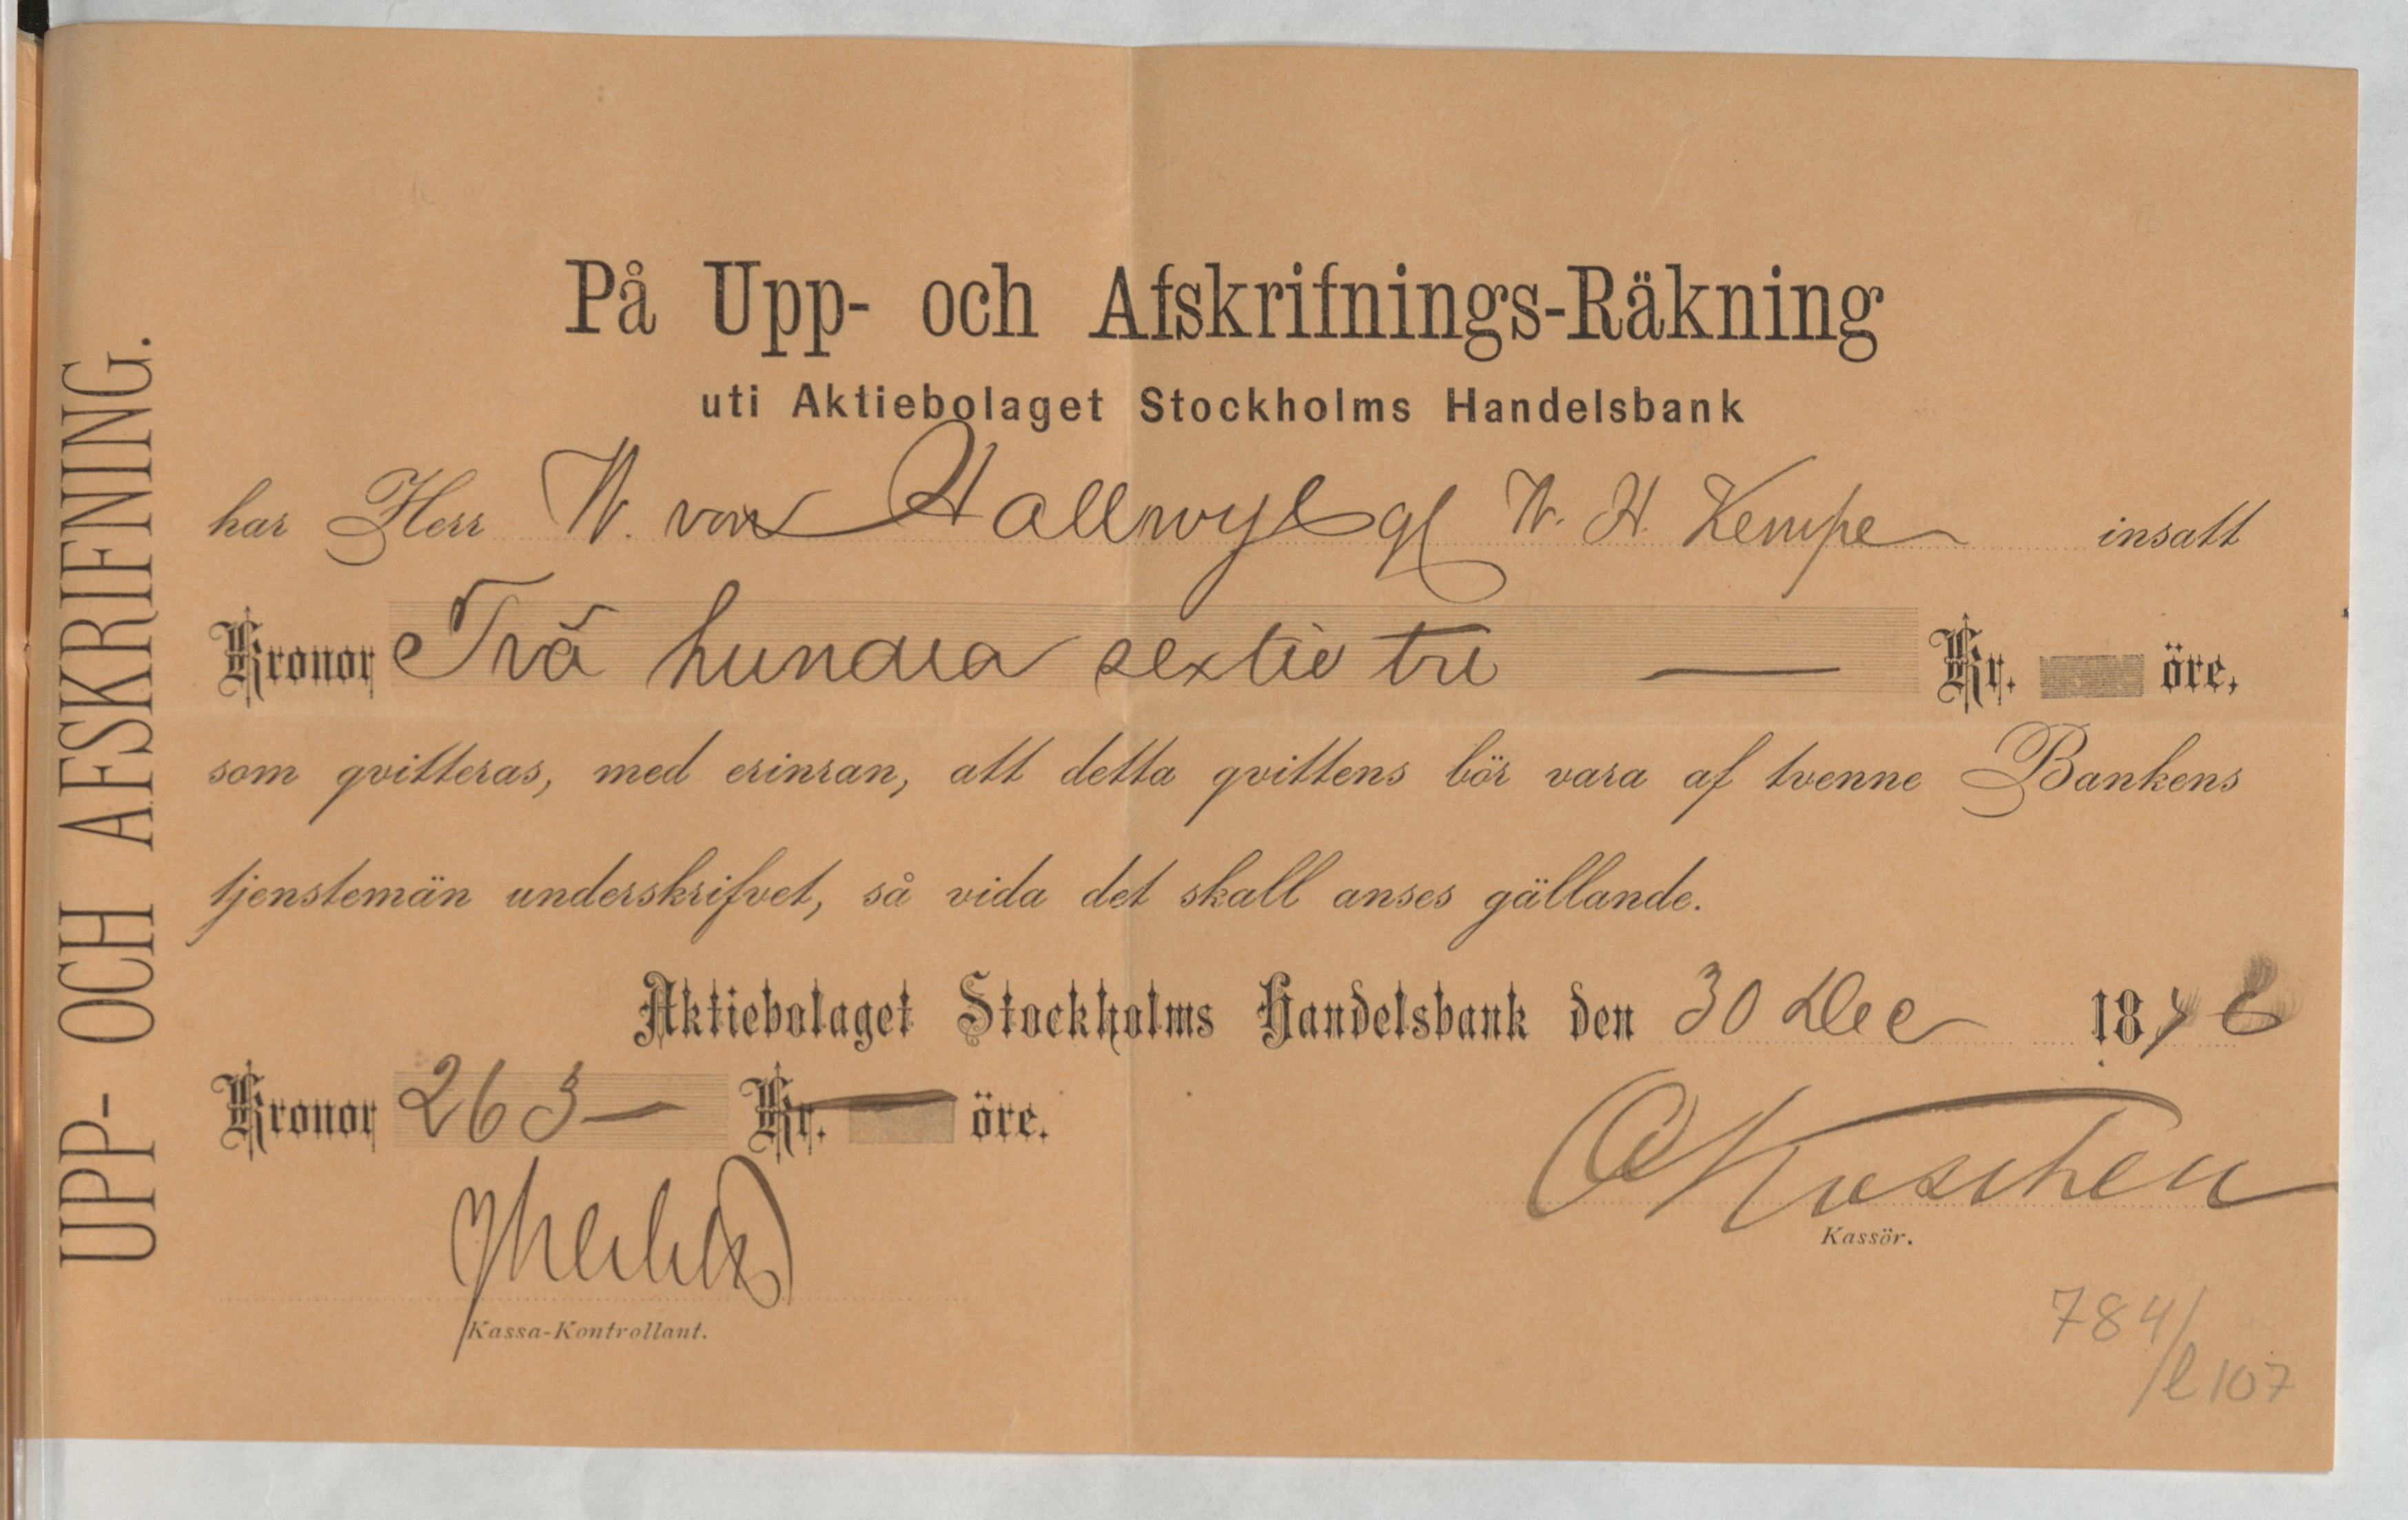 UPP- OCH AFSKRIFNING.
På Upp- och Afskrifnings-Räkning
uti Aktiebolaget Stockholms Handelsbank
har Herr W. von Hallwyl gl W. H. Kempe insatt
Kronor Två hundra sextio tre — Kr. öre,
som qvitteras, med erinran, att detta qvittens bör vara af tvenne Bankens
tjenstemän underskrifvet, så vida det skall anses gällande.
Aktiebolaget Stockholms Handelsbank den 30 Dec 18
Kronor 263 — Kr. — öre.
Kassör.
Kassa-Kontrollant.
784/
/l 107